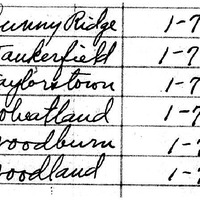 unny Ridge 1-7
ankerfield 1-7
aylorstown 1-7
heatland 1-7
oodburn 1-7
oodland 1-7